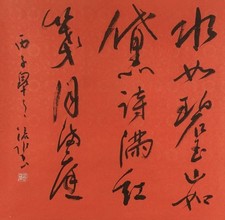 水如碧玉山如
黛诗满红
笺月满庭
丙子